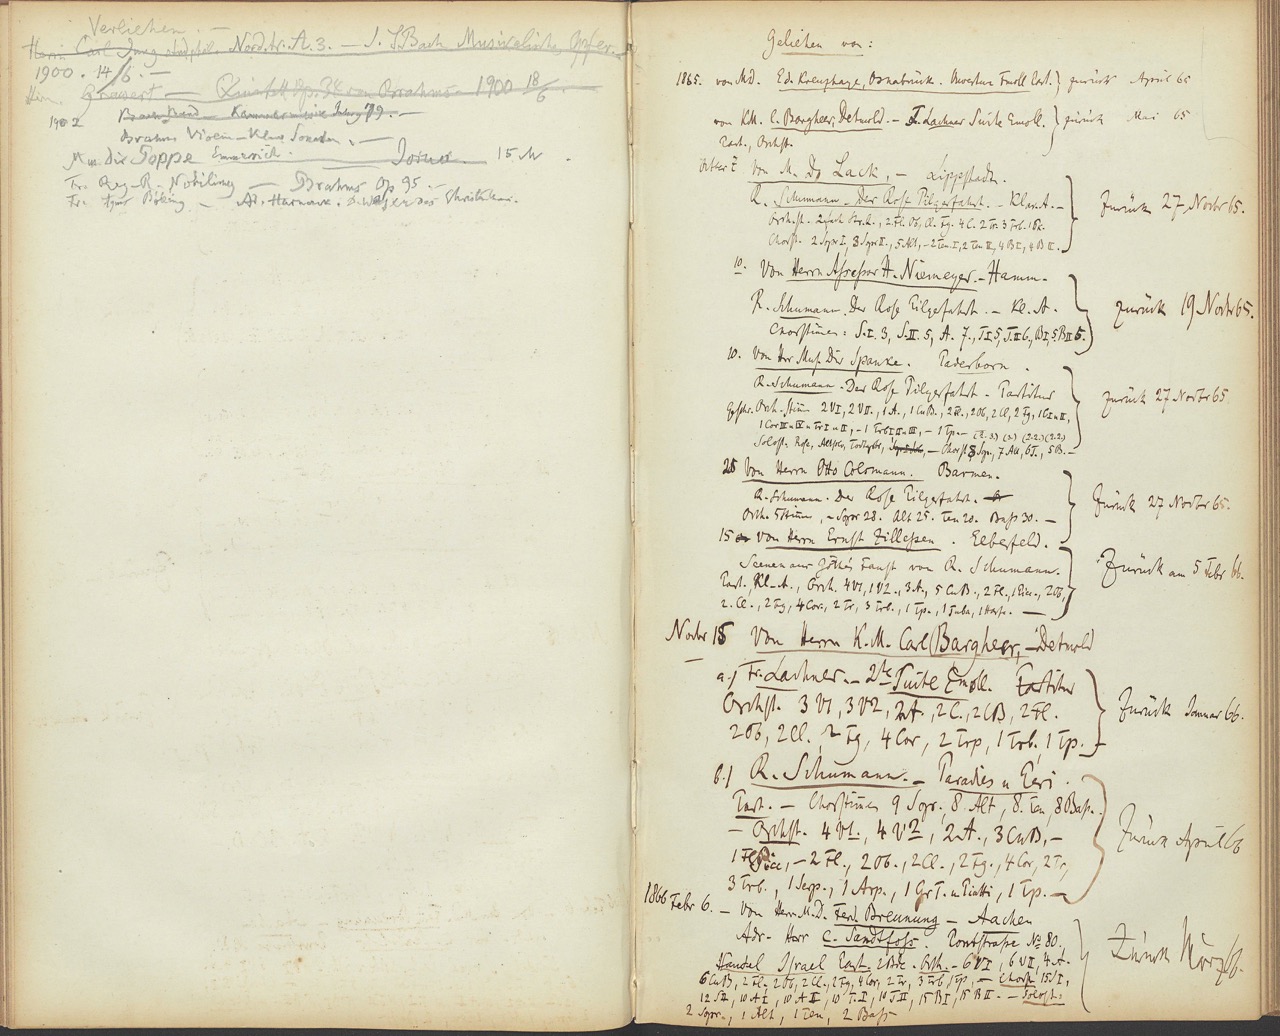 Verliehen. —
Herrn Carl Jung stud. phil. Nordstr. A. 3. — J. S. Bach Musicalisches Opfer.
1900. 14/6. —
Hrn. — Quintett Op. 34 von Brahms — 1900 18/6.
1902
Brahms Violin-Klav Sonaten. —
Mus. Dir Poppe Emmerich. 15 M.
Fr. Reg-R. Nobiling — Brahms Op 95. —
Fr. — Ad. Harnack. D. Wesen des Christenthums.
Geliehen von:
1865. von Md. Ed. Kreuzhage, Osnabrück. Ouverture Fmoll Part. } zurück April 65
von KM. C. Bargheer, Detmold. — F. Lachner Suite Emoll. } zurück Mai 65
Part., Orchst.
October 7. Von M. D. Lack, — Lippstadt.
R. Schumann. Der Rose Pilgerfahrt. — Klav.A. —
Chorst. 2 Sopr I, 3 Sopr II., 5 Alt, — 2 Ten. I, 2 Ten II, 4 B I, 4 B II.
zurück 27 Novbr 65.
10. Von Herrn Assessor H. Niemeyer. — Hamm.
R. Schumann. Der Rose Pilgerfahrt. — Kl. A.
Chorstimen: S.I. 3, S.II. 5, A. 7., T.I 5, T.II 6., B I, 5. B II 5.
zurück 19 Novbr 65.
10. Von Hrr Mus. Dir Spanke. Paderborn.
R. Schumann. Der Rose Pilgerfahrt — Partitur
Orch. Stim 2 V I, 2 V II., 1 A., 1 CuB., 2 Fl., 2 Ob, 2 Cl, 2 Fg, 1 C I u II,
1 Cor III u IV u Tr I u II, — 1 Trb I II u III, — 1 Tp. —
Solost. Rose, — Chorst 8 Sop, 7 Alt, 6 T., 5 B. —
zurück 27 Novbr 65
25 Von Herrn Otto Colsmann. Barmen.
R. Schumann. Der Rose Pilgerfahrt.
Orch. Stime, — Sopr 28. Alt 25. Ten 20. Bass 30. —
Zurück 27 Novbr 65.
15 von Herrn Ernst Zillessen. Elberfeld.
Scenen aus Göthes Faust von R. Schumann.
Part., Kl.-A., Orch. 4 V 1, 1 V 2., 3 A., 5 CuB., 2 Fl., 1 Picc., 2 Ob,
2. Cl., 2 Fg, 4 Cor., 2 Tr, 3 Trb., 1 Tp., 1 Tuba, 1 Harfe. —
Zurück am 5 Febr 66.
Novbr 15 Von Herrn K.M. Carl Bargheer, — Detmold
a.) Fr. Lachner. — 2te Suite Emoll. Partitur
Orchst. 3 V1, 3 V2, 2 A., 2 C., 2 CB, 2 Fl.
2 Ob, 2 Cl., 2 Fg, 4 Cor, 2 Trp, 1 Trb. 1 Tp. —
Zurück Januar 66.
b.) R. Schumann. — Paradies u Peri.
Part. — Chorstimen 9 Sopr., 8. Alt, 8. Ten, 8 Bass. —
— Orchst. 4 V1., 4 V2, 2 A., 3 CuB, —
1 Picc, — 2 Fl., 2 Ob., 2 Cl., 2 Fg., 4 Cor, 2 Tr,
3 Trb., 1 Serp., 1 Arp., 1 Gr T. u Piatti, 1 Tp. —
Zurück April 66
1866 Febr 6. — Von Herrn M.D. Ferd. Breunung — Aachen
Adr — Herr C. Sandtfoss. Pontstrasse No 80.
Händel Israel Part. — Orch. — 6 V I, 6 V II, 4 A.
6 CuB, 2 Fl., 2 Ob, 2 Cl., 2 Fg, 4 Cor, 2 Tr, 3 Trb, 1 Tp, — Chorst. 15 S I,
12 S II, 10 A I, 10 A II, 10 T. I, 10 T II, 15 B I, 15 B II. — Solost:
2 Sopr., 1 Alt, 1 Ten, 2 Bass
Zurück März 66.